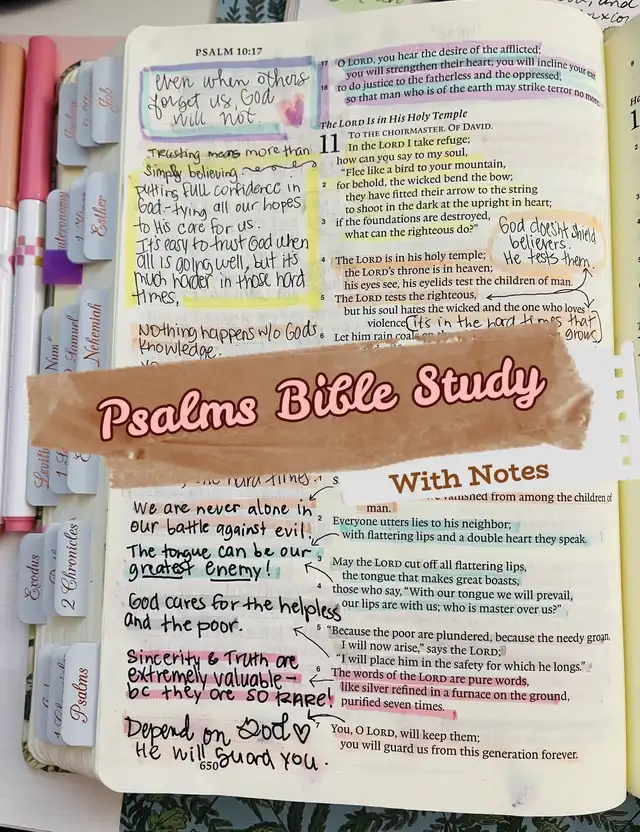 PSALM 10:17
even when others
forget us, God
will not.
Trusting means more than
simply believing
putting full confidence in
God-tying all our hopes
to His care for us.
It's easy to trust God when
all is going well, but it's
much harder in those hard
times.
Nothing happens w/o Gods
knowledge.
17 O LORD, you hear the desire of the afflicted;
you will strengthen their heart; you will incline your ear
18 to do justice to the fatherless and the oppressed,
so that man who is of the earth may strike terror no more.
The LORD Is in His Holy Temple
11 TO THE CHOIRMASTER. OF DAVID.
In the LORD I take refuge;
how can you say to my soul,
"Flee like a bird to your mountain,
2 for behold, the wicked bend the bow;
they have fitted their arrow to the string
to shoot in the dark at the upright in heart;
3 if the foundations are destroyed,
what can the righteous do?"
God doesn't shield
believers.
He tests them.
4 The LORD is in his holy temple;
the LORD's throne is in heaven;
his eyes see, his eyelids test the children of man.
5 The LORD tests the righteous,
but his soul hates the wicked and the one who loves
violence.
it's in the hard times that
grows
6 Let him rain coal
Psalms Bible Study
With Notes
the hard times.
We are never alone in
our battle against evil.
The tongue can be our
greatest enemy!
God cares for the helpless
and the poor.
Sincerity & Truth are
extremely valuable-
bc they are SO RARE!
Depend on God
He will guard you.
650
1
vanished from among the children of
man.
2 Everyone utters lies to his neighbor;
with flattering lips and a double heart they speak.
3 May the LORD cut off all flattering lips,
the tongue that makes great boasts,
4 those who say, "With our tongue we will prevail,
our lips are with us; who is master over us?"
5 "Because the poor are plundered, because the needy groan,
I will now arise," says the LORD;
"I will place him in the safety for which he longs."
6 The words of the LORD are pure words,
like silver refined in a furnace on the ground,
purified seven times.
7 You, O LORD, will keep them;
you will guard us from this generation forever.
Job
Esther
Nehemiah
2 Chronicles
Exodus
Psalms